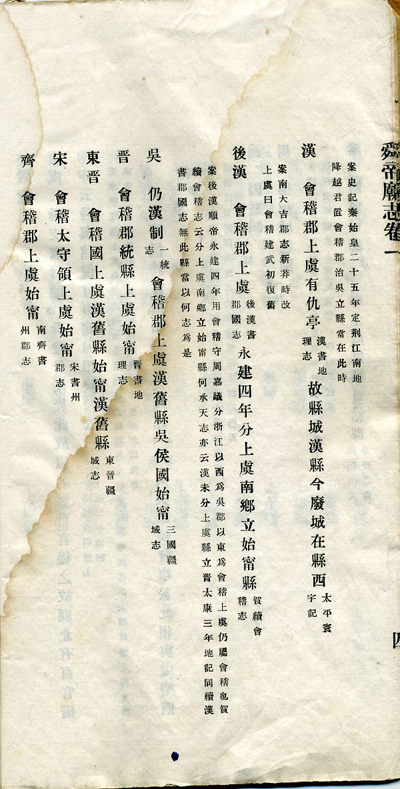 舜帝廟志卷一
四
案史記秦始皇二十五年定荆江南地
降越君置會稽郡治吳立縣當在此時
漢　會稽郡上虞有仇亭漢書地理志　故縣城漢縣今廢城在縣西太平寰宇記
案南大吉郡志新莽時改
上虞曰會稽建武初復舊
後漢　會稽郡上虞後漢書郡國志　永建四年分上虞南鄉立始甯縣賀續會稽志
案後漢順帝永建四年用會稽守周嘉議分浙江以西爲吳郡以東爲會稽上虞仍屬會稽也賀
續會稽志云分上虞南鄉立始甯縣何承天志亦云漢末分上虞縣立晋太康三年地記同續漢
書郡國志無此縣當以何志爲是
吳　仍漢制一統志　會稽郡上虞漢舊縣吳侯國始甯三國疆域志
晋　會稽郡統縣上虞始甯晋書地理志
東晋　會稽國上虞漢舊縣始甯漢舊縣東晋疆域志
宋　會稽太守領上虞始甯宋書州郡志
齊　會稽郡上虞始甯南齊書州郡志